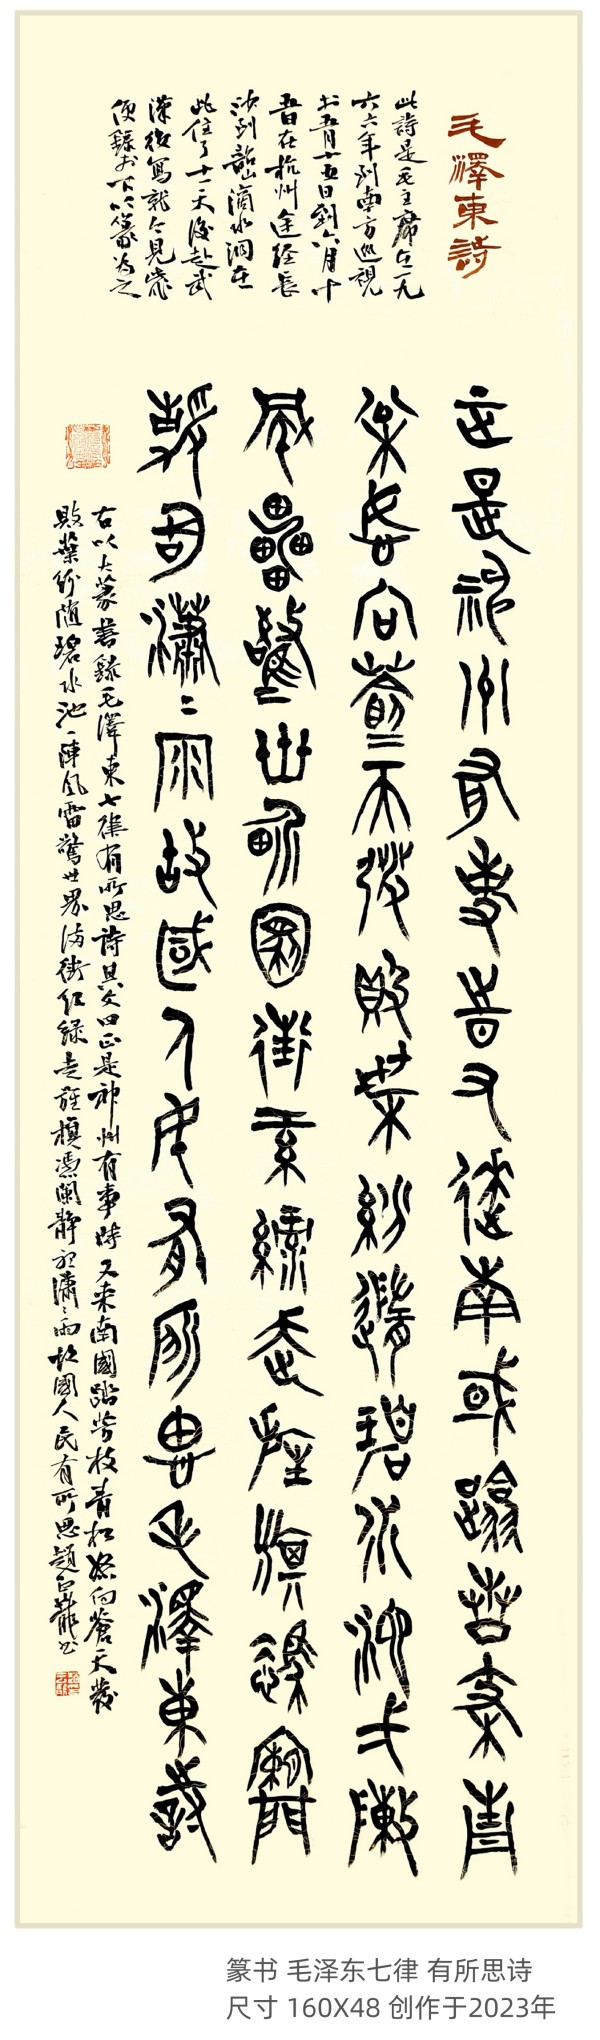 毛澤東詩
此詩是毛主席在一九
六六年到南方巡視
於五月十五日到六月十
五日在杭州途經長
沙到韶山滴水洞在
此住了十一天後赴武
漢後寫就今見
便錄於下以篆為之
正是神州有事時又來南國踏芳枝青
松怒向蒼天發敗葉紛隨碧水池弌陣
風雷驚世界滿街紅綠走旌旗憑闌
靜聽瀟瀟雨故國人民有所思毛澤東詩
右以大篆書錄毛澤東七律有所思詩其文曰正是神州有事時又來南國踏芳枝青松怒向蒼天發
敗葉紛隨碧水池一陣風雷驚世界滿街紅綠走旌旗憑闌靜聽瀟瀟雨故國人民有所思趙
篆书 毛泽东七律 有所思诗
尺寸 160X48 创作于2023年